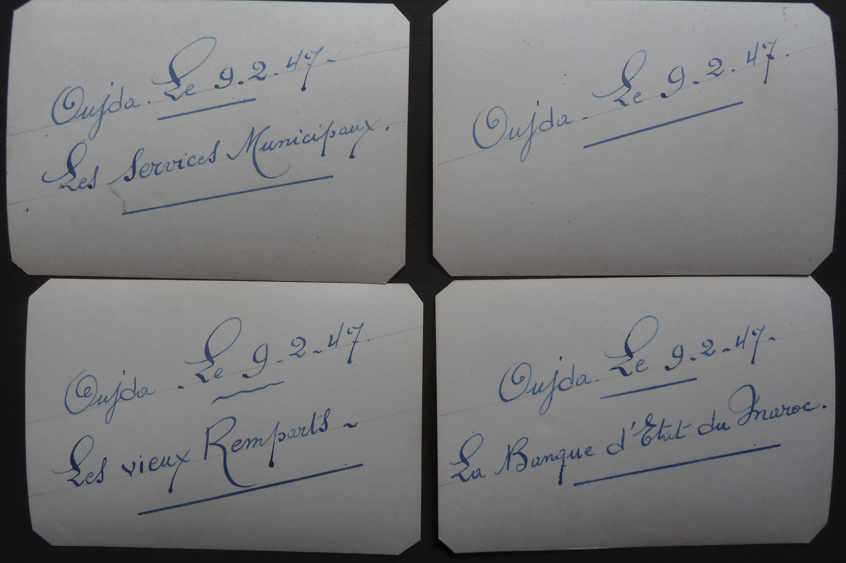 Oujda. Le 9.2.47-
Les Services Municipaux.
Oujda. Le 9.2.47.
Oujda - Le 9-2-47.
Les vieux Remparts -
Oujda. Le 9-2-47-
La Banque d'Etat du Maroc.